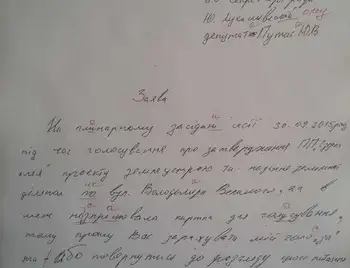 В.о. секретаря ради
Ю. Лукашевській
депутат Путас Ю.В
Заява
На пленарному засідані сесії 30.09.2015 року
під час голосування про затвердження
проєкту землеустрою та надання земельної
ділянки по вул. Володимира Великого, 
мене не спрацювала картка для голосування,
тому прошу Вас зарахувать мій голос „за"
та або повернутись до розгляду цього питання